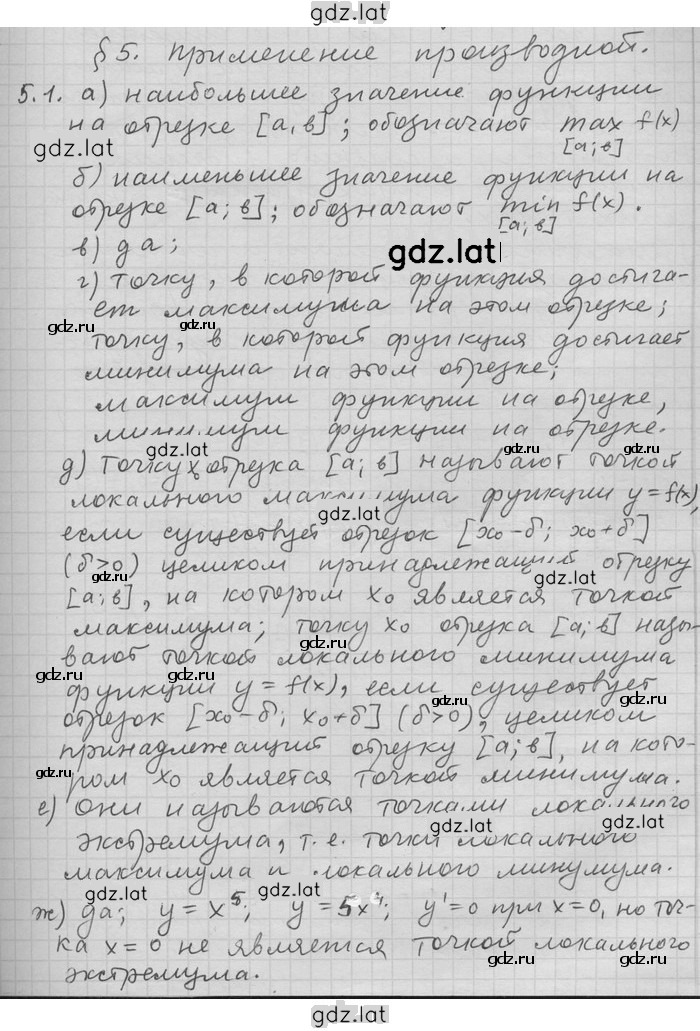 gdz.lat
§5. Применение производной.
5.1. а) наибольшее значение функции
на отрезке [a, в]; обозначают max f(x)
[a; в]
gdz.lat
б) наименьшее значение функции на
отрезке [a; в]; обозначают min f(x).
[a; в]
в) да;
gdz.lat
г) точку, в которой функция достига-
ет максимума на этом отрезке;
gdz.ru gdz.ru gdz.ru
точку, в которой функция достигает
минимума на этом отрезке;
максимум функции на отрезке,
минимум функции на отрезке.
gdz.lat gdz.lat
д) Точку x₀ отрезка [a; в] называют точкой
локального максимума функции y = f(x),
gdz.lat
если существует отрезок [x₀-δ; x₀+δ]
(δ>0) целиком принадлежащий отрезку
gdz.lat
[a; в], на котором x₀ является точкой
максимума; точку x₀ отрезка [a; в] назы-
gdz.ru gdz.ru
вают точкой локального минимума
gdz.ru gdz.ru
функции y = f(x), если существует
отрезок [x₀-δ; x₀+δ] (δ>0), целиком
принадлежащий отрезку [a; в], на кото-
gdz.ru gdz.ru
ром x₀ является точкой минимума.
е) Они называются точками локального
gdz.lat gdz.lat
экстремума, т. е. точки локального
максимума и локального минумума.
gdz.lat gdz.lat
ж) да; y = x⁵; y = 5x⁴; y' = 0 при x = 0, но точ-
ка x = 0 не является точкой локального
gdz.ru gdz.ru
экстремума.
gdz.lat